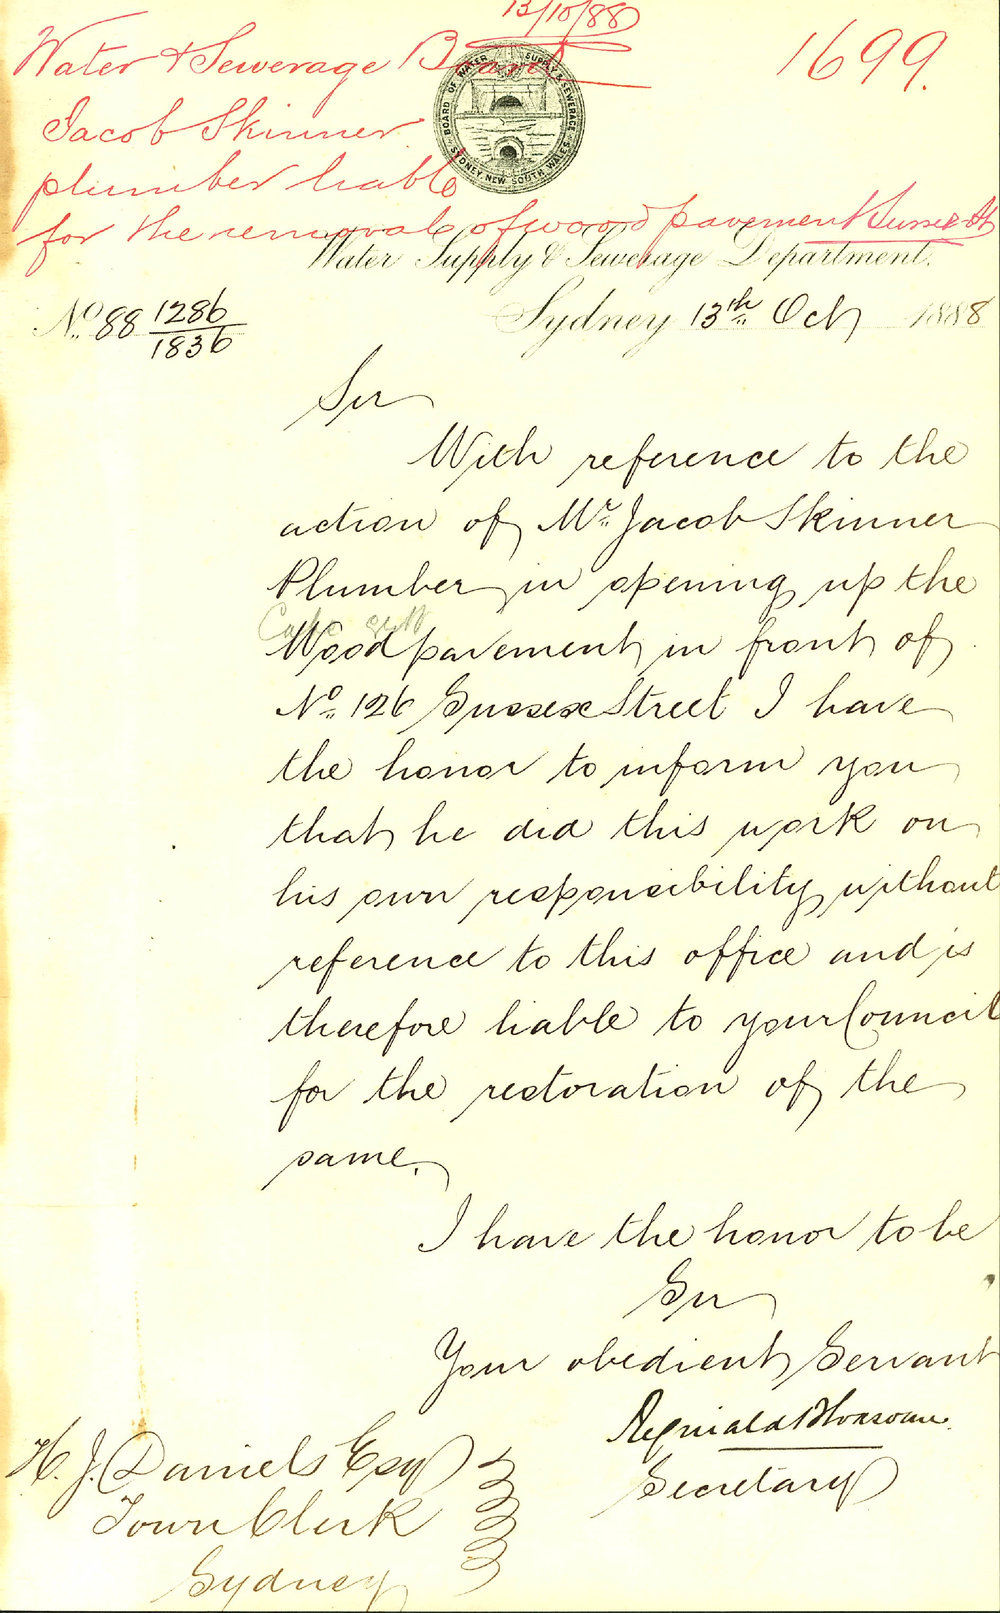 13/10/88
1699.
Water & Sewerage Board
Jacob Skinner
plumber liable
for the removal of wood pavement Sussex St
BOARD OF WATER SUPPLY & SEWERAGE
SYDNEY, NEW SOUTH WALES
Water Supply & Sewerage Department.
No. 88 1286
1836
Sydney 13th Oct 1888
Sir
With reference to the
action of Mr. Jacob Skinner
Plumber in opening up the
Wood pavement in front of
No. 126 Sussex Street I have
the honor to inform you
that he did this work on
his own responsibility without
reference to this office and is
therefore liable to your Council
for the restoration of the
same.
I have the honor to be
Sir
Your obedient Servant
Reginald
Secretary
H. J. Daniels Esq
Town Clerk
Sydney